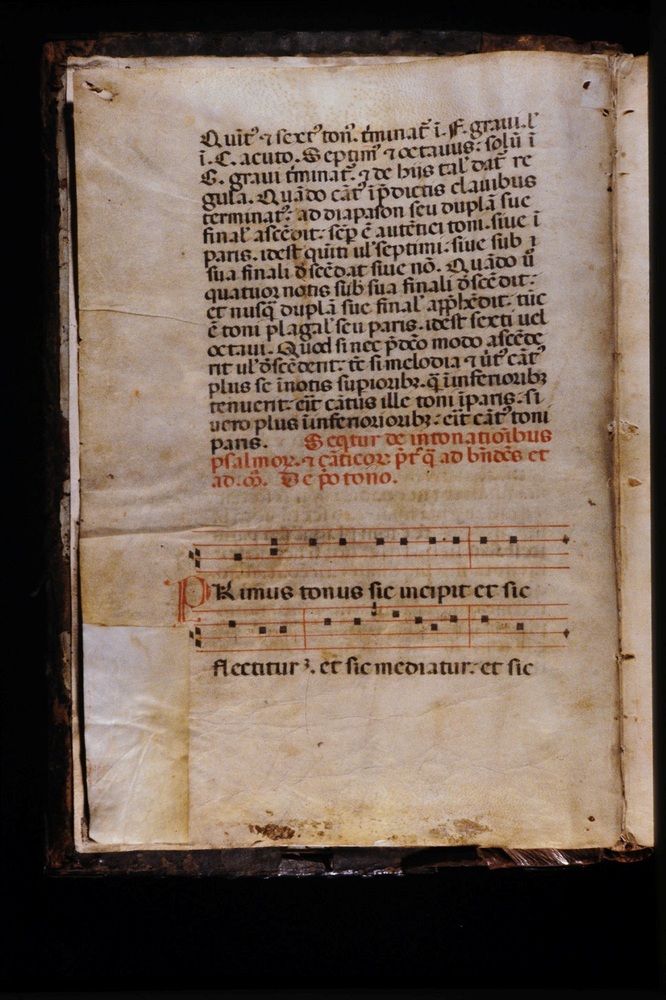 Quīt᷒ ⁊ sext᷒ ton᷒. t̄minat᷑ ī. F. graui. ł
ī. C. acuto. Septim᷒ ⁊ octauus: solū ī
G. graui t̄minat᷑. ⁊ de hijs tal᷒ dat᷑ re
gula. Quādo cāt᷒ ī p̄dictis clauibus
terminat᷑: ad diapason seu duplā sue
final᷒ ascēdit: sēp̄ ē autētici toni. siue ī
paris. idest quīti ul᷒ septimi: siue sub
sua finali d̄scēdat siue nō. Quādo ū̄
quatuor notis sub sua finali d̄scēdit:
et nusq̄ duplā sue final᷒ app̄hēdit: tūc
ē toni plagal᷒ seu paris. idest sexti uel
octaui. Quod si nec p̄dc̄o modo ascēde
rit ul᷒ d̄scēderit: tc̄ si melodia ⁊ ūt᷒ cāt᷒
plus se ī notis supioribꝫ. q̄ ī inferioribꝫ
tenuerit: eīt cātus ille toni īparis. si
uero plus ī inferiorioribꝫ: eīt cāt᷒ toni
paris. Seq̄tur de intonatiōibus
psalmoꝝ. ⁊ cāticoꝝ p̄t᷒ q̄ ad bn̄dc̄s et
ad. m̄. De p̄o tono.
PRimus tonus sic incipit et sic
flectitur ꝫ. et sic mediatur: et sic